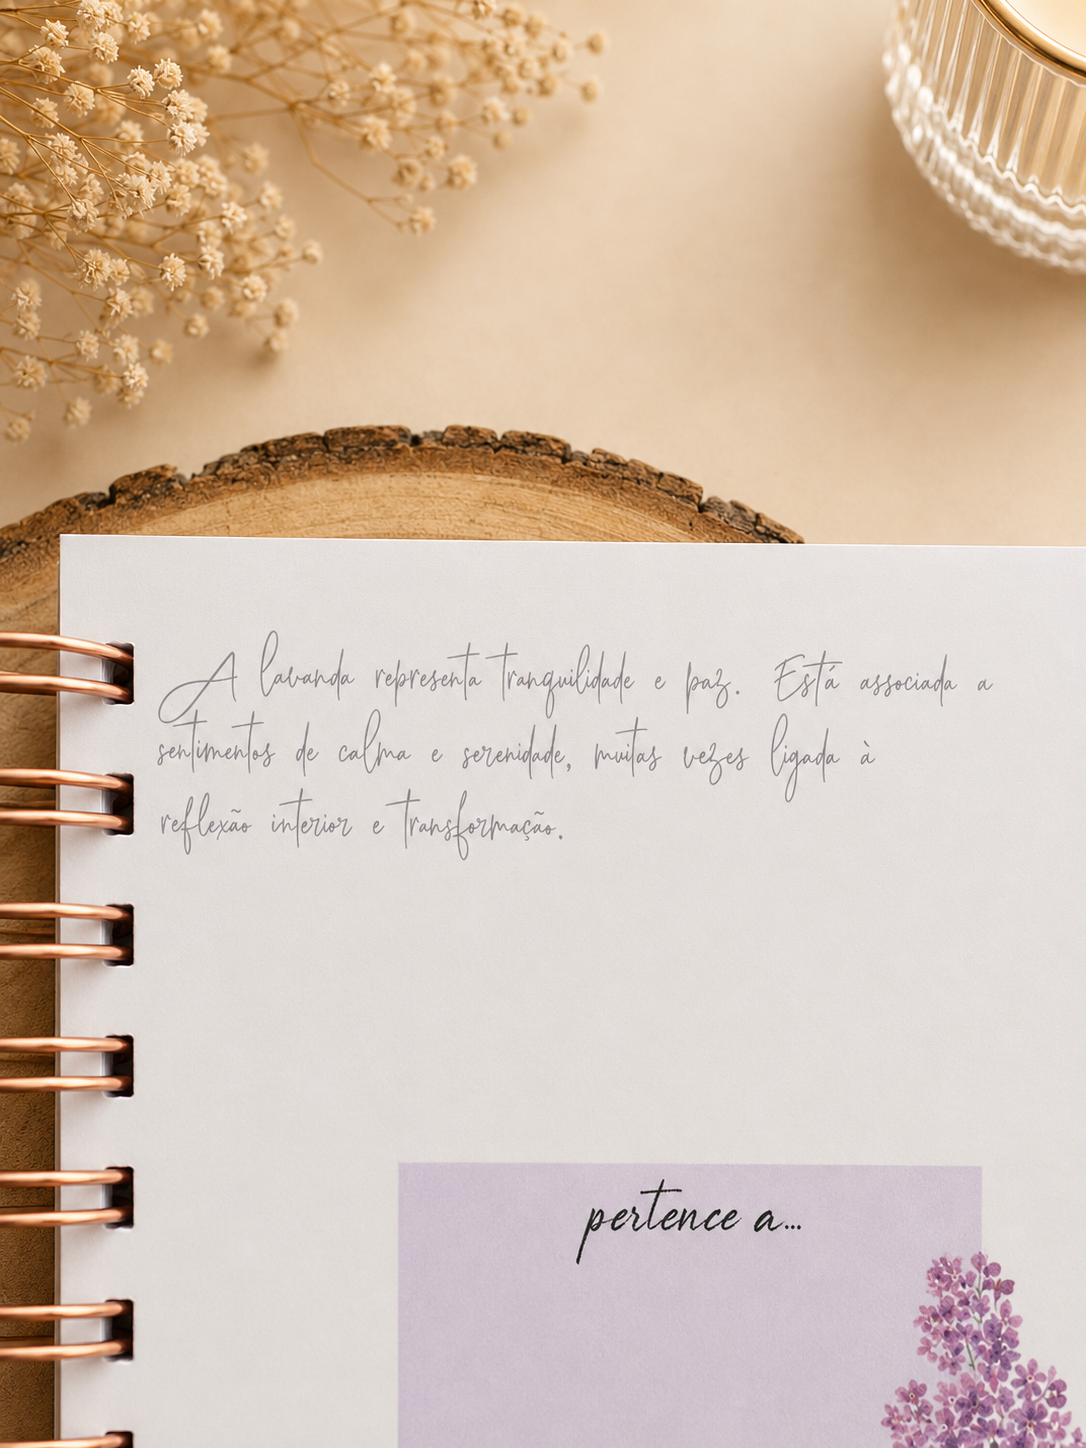 A lavanda representa tranquilidade e paz. Está associada a
sentimentos de calma e serenidade, muitas vezes ligada à
reflexão interior e transformação.
pertence a...